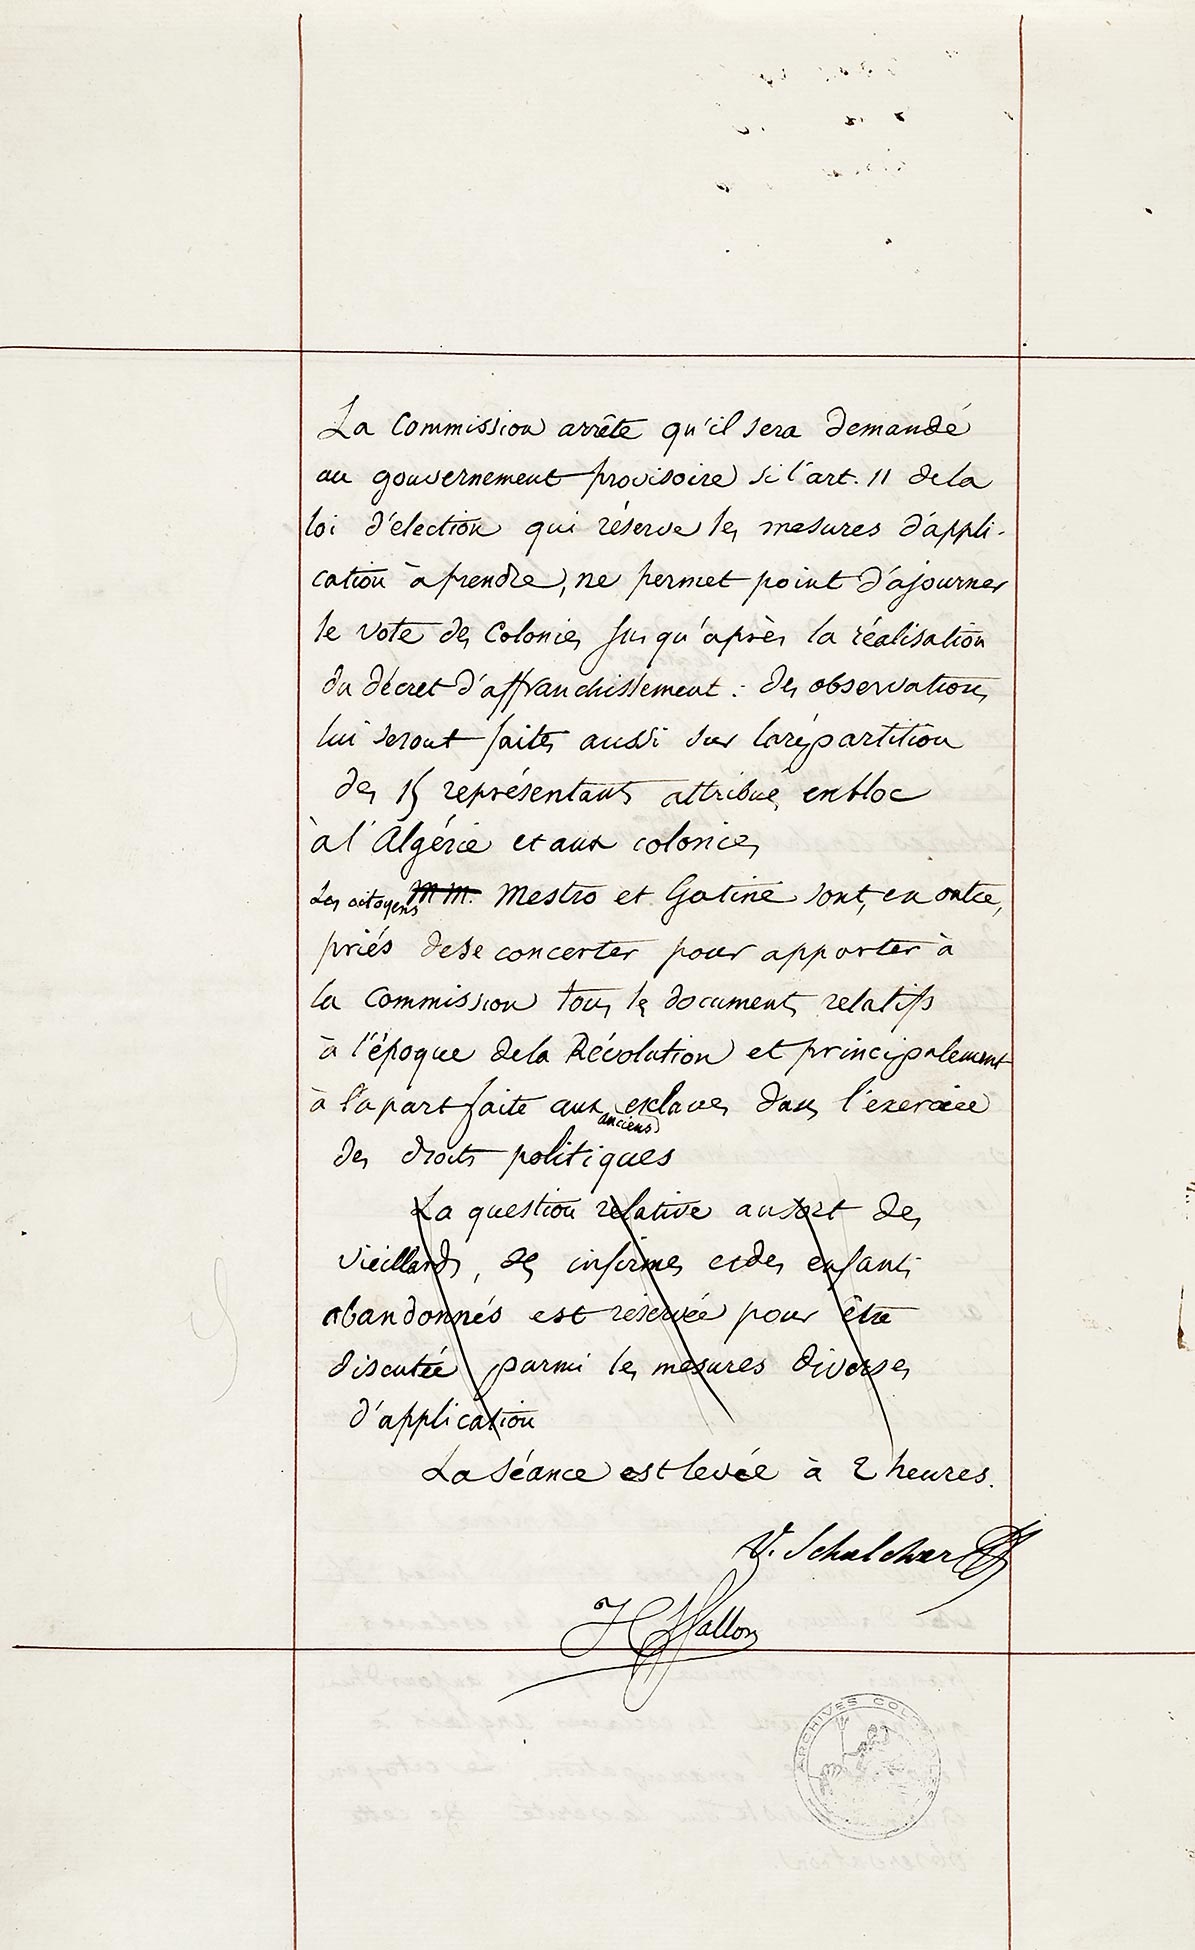 La Commission arrête qu'il sera demandé
au gouvernement provisoire si l'art. 11 de la
loi d'élection qui réserve les mesures d'appli-
cation à prendre, ne permet point d'ajourner
le vote des Colonies jusqu'après la réalisation
du décret d'affranchissement : des observations
lui seront faites aussi sur la répartition
des 15 représentants attribués en bloc
à l'Algérie et aux colonies
Les citoyens M.M. Mestro et Gatine sont, en outre,
priés de se concerter pour apporter à
la Commission tous les documents relatifs
à l'époque de la Révolution et principalement
à la part faite aux esclaves dans l'exercice
anciens
des droits politiques
La question relative au sort des
vieillards, des infirmes et des enfants
abandonnés est réservée pour être
discutée parmi les mesures diverses
d'application
La séance est levée à 2 heures.
V. Schœlcher
H Wallon
ARCHIVES COLONIALES